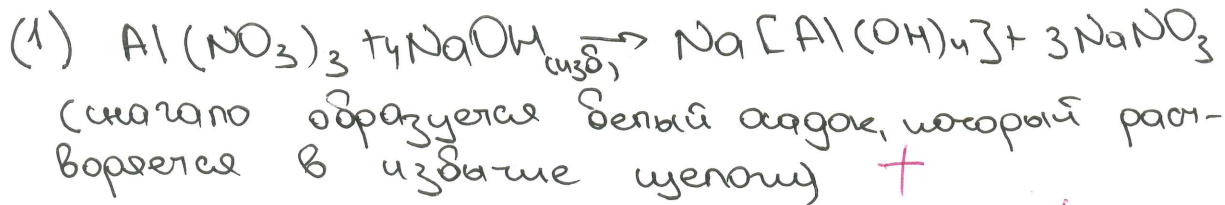 (1) Al(NO₃)₃ + 4NaOH (изб) → Na[Al(OH)₄] + 3NaNO₃
(сначало образуется белый осадок, который раст-
воряется в избытке щелочи) +